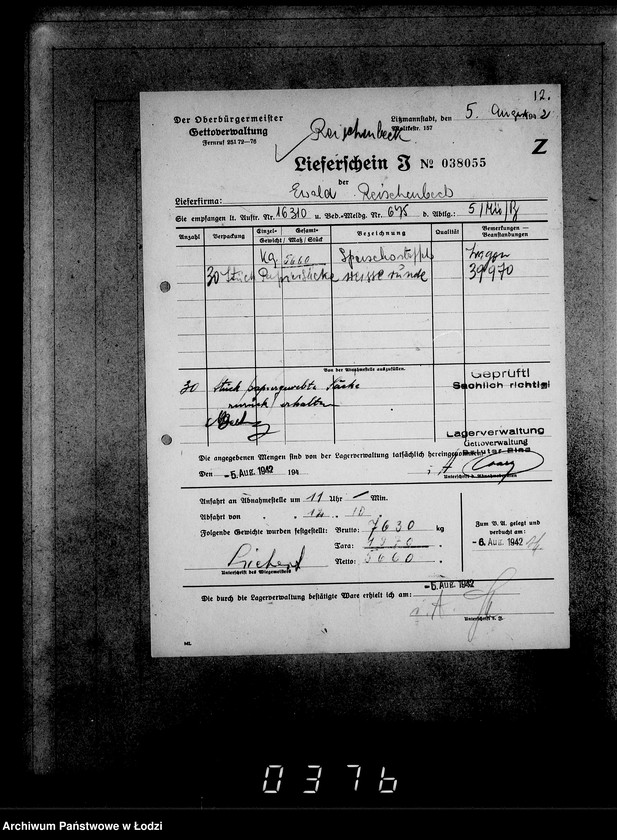 12.
Der Oberbürgermeister
Gettoverwaltung
Fernruf 251 72—76
Litzmannstadt, den 5. August 1942
Moltkestr. 157
Reischenbeck
Z
Lieferschein J No 038055
der
Lieferfirma: Ewald Reischenbeck
Sie empfangen lt. Auftr. Nr. 16310 u. Bed.-Meldg. Nr. 675 d. Abtlg.: 5/
Anzahl Verpackung Einzel- Gesamt- Gewicht / Maß / Stück Bezeichnung Qualität Bemerkungen — Beanstandungen
Kg 5660
30 Stück Papiersäcke weisse runde 39970
Von der Abnahmestelle auszufüllen.
30 Stück papiergewebte Säcke
zurück erhalten
Geprüft!
Sachlich richtig!
Lagerverwaltung
Gettoverwaltung
Die angegebenen Mengen sind von der Lagerverwaltung tatsächlich hereingenommen
Den -5. Aug. 1942 194
Unterschrift d. Abnahmestelle
Anfahrt an Abnahmestelle um 11 Uhr — Min.
Abfahrt von " " 12 " 10 "
Folgende Gewichte wurden festgestellt: Brutto: 7630 kg
Tara:
Netto: 5660 "
Unterschrift des Wiegemeisters
Zum B. A. gelegt und
verbucht am:
-6. Aug. 1942
Die durch die Lagerverwaltung bestätigte Ware erhielt ich am: -5. Aug. 1942
ML
0376
Archiwum Państwowe w Łodzi